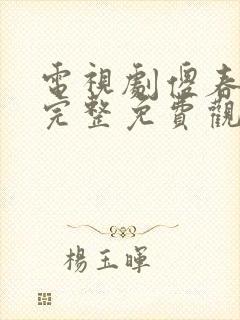 電視劇傻春
完整免費觀
楊玉暉